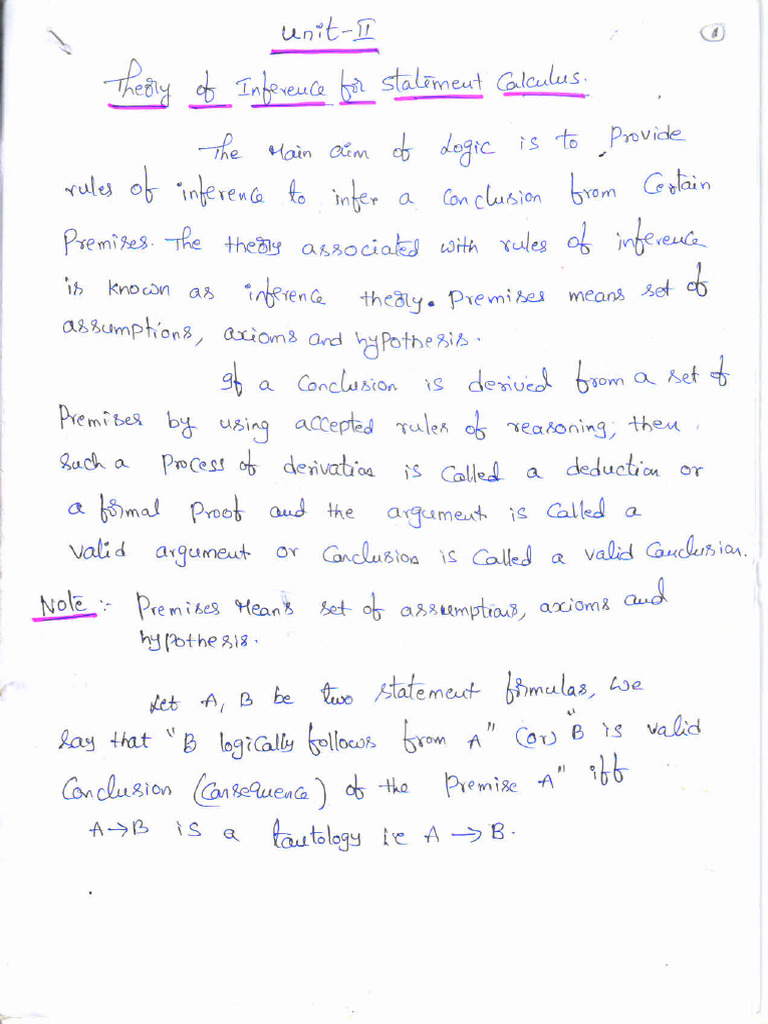 Unit-II
1
Theory of Inference for Statement Calculus.
The Main aim of Logic is to Provide
rules of inference to infer a Conclusion from Certain
Premises. The theory associated with rules of inference
is known as inference theory. Premises means set of
assumptions, axioms and hypothesis.
If a Conclusion is derived from a set of
Premises by using accepted rules of reasoning, then
such a Process of derivation is Called a deduction or
a formal Proof and the argument is Called a
valid argument or Conclusion is Called a valid Conclusion.
Note :- Premises Means set of assumptions, axioms and
hypothesis.
Let A, B be two statement formulas, we
say that "B logically follows from A" (or) "B is valid
Conclusion (Consequence) of the Premise A" iff
A→B is a tautology i.e A → B.